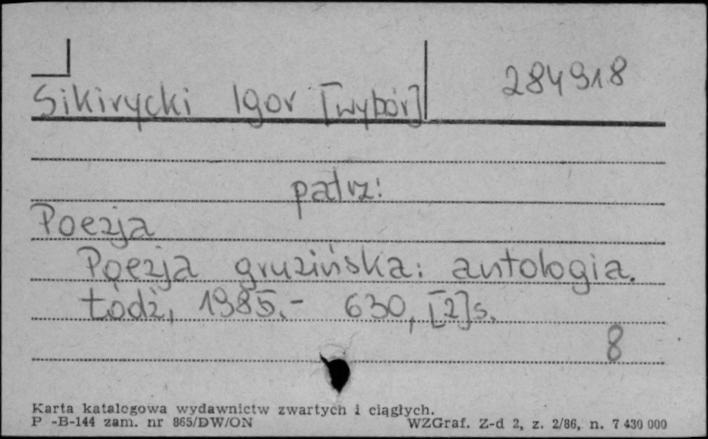 Sikirycki Igor [wybór] 284918
patrz:
Poezja
Poezja gruzińska: antologia.
Łódź, 1985.- 630, [2]s.
8
Karta katalogowa wydawnictw zwartych i ciągłych.
P -B-144 zam. nr 865/DW/ON WZGraf. Z-d 2, z. 2/86, n. 7 430 000